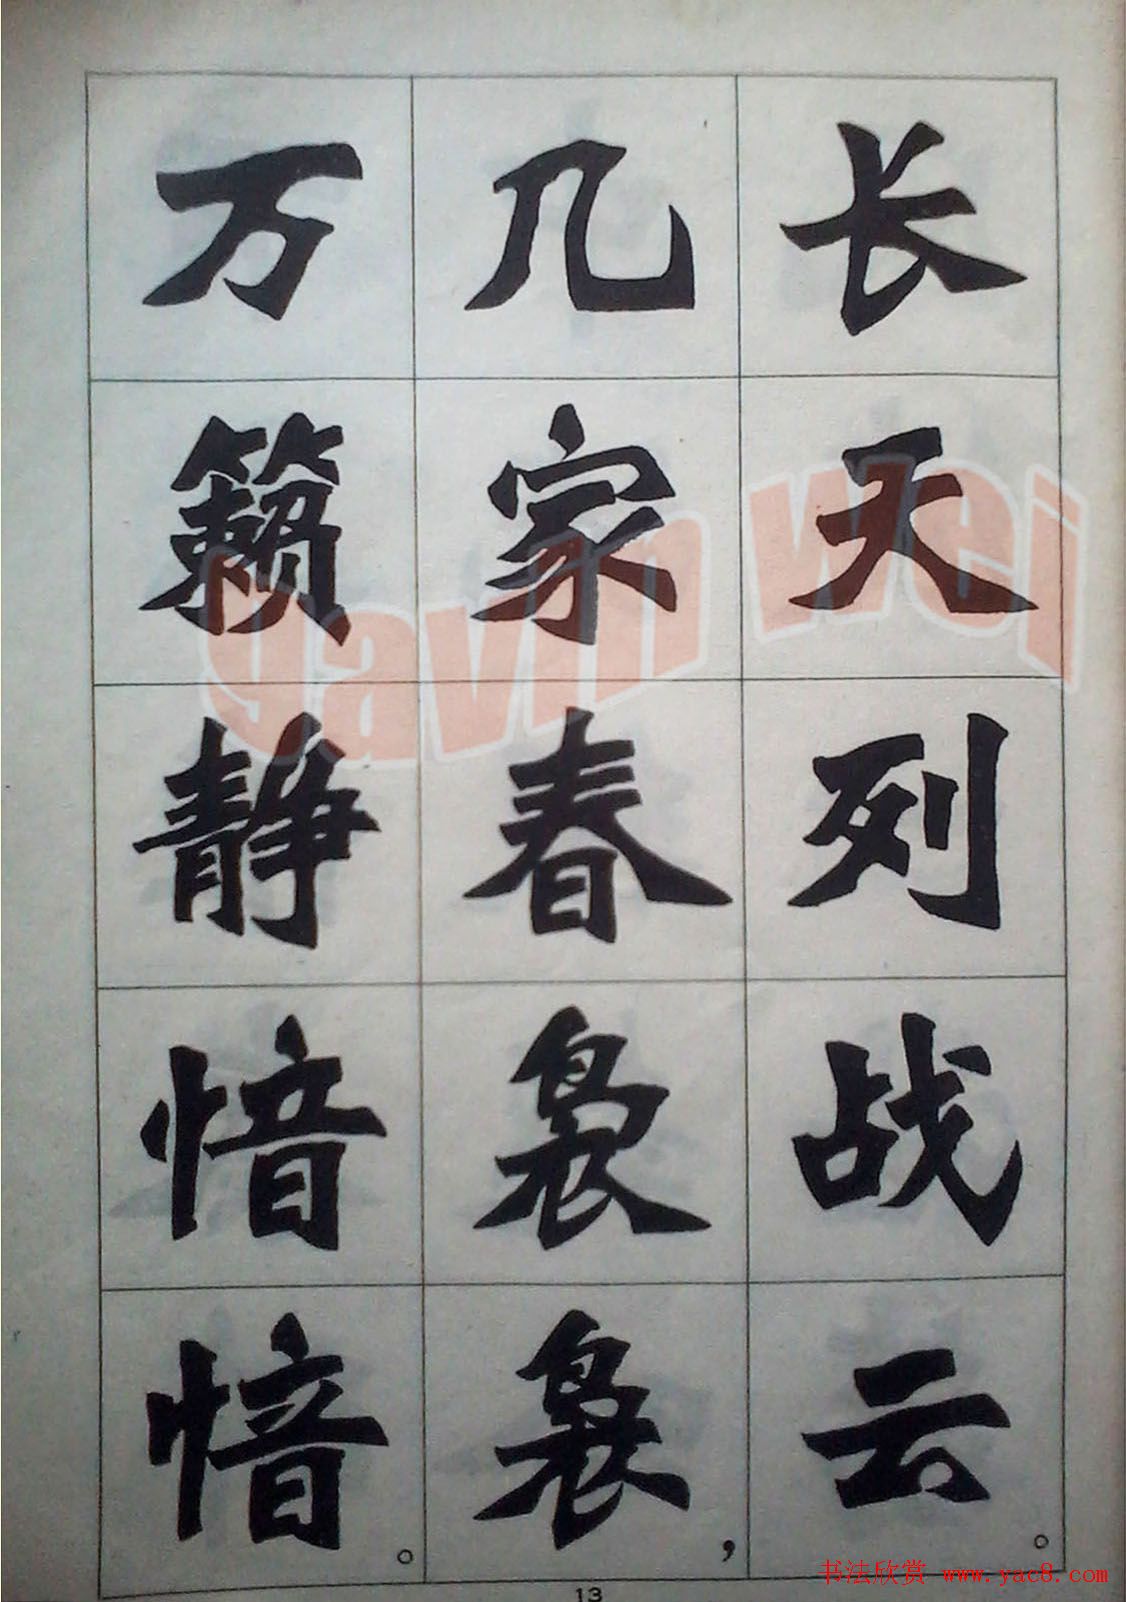 长天列战云。
几家春袅袅，
万籁静愔愔。
gavin wei
13
书法欣赏 www.yac8.com